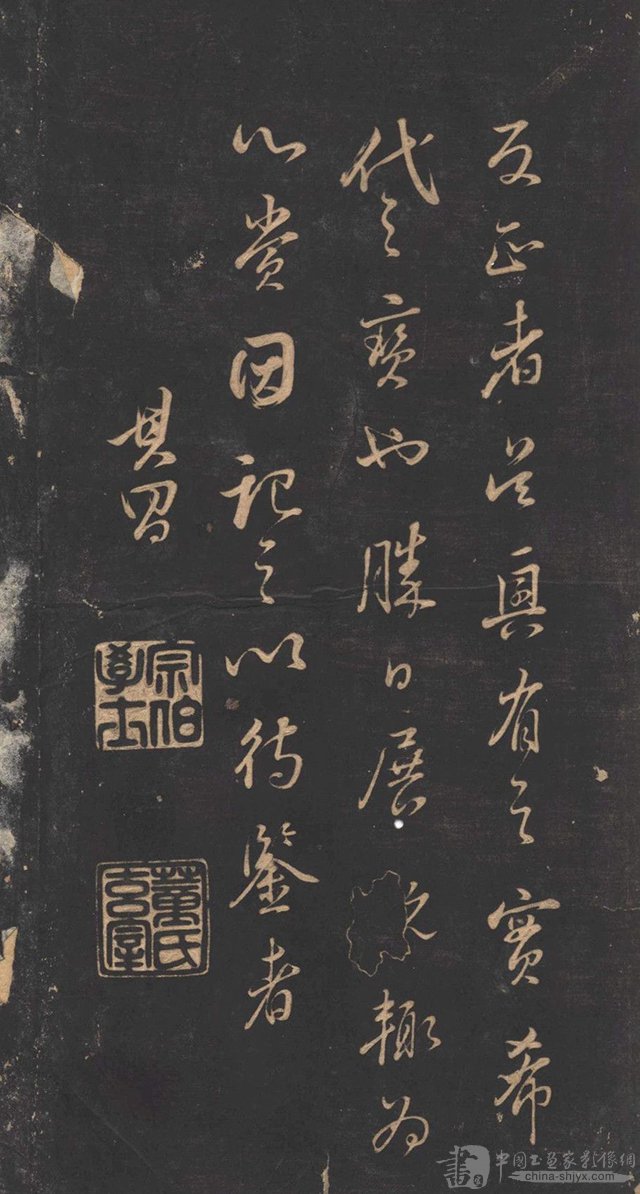 反正者吳興有之實希
代之寶也勝日展輒為
心賞因記之以待鑒者
其昌
宗伯學士
董氏玄宰
書 中国书画家影像網
china-shjyx.com